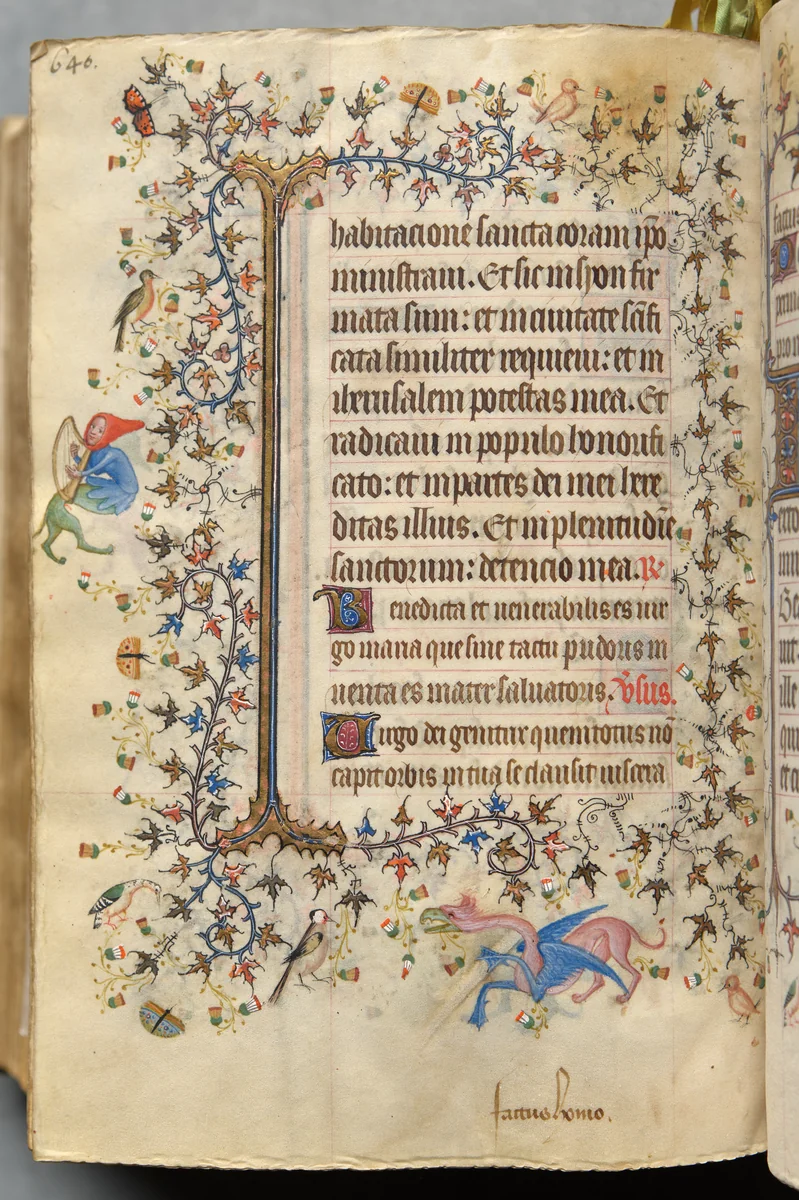 640.
habitacione sancta coram ip̄o
ministraui. Et sic in syon fir
mata sum: et in ciuitate sc̄ifi
cata similiter requieui: et in
iherusalem potestas mea. Et
radicaui in populo honorifi
cato: et in partes dei mei here
ditas illius. Et in plenitudīe
sanctorum: detencio mea. R
Benedicta et uenerabilis es uir
go maria que sine tactu pudoris in
uenta es mater saluatoris. v̄sus.
Uirgo dei genitrix quem totus nō
capit orbis in tua se clausit uiscera
factus homo.